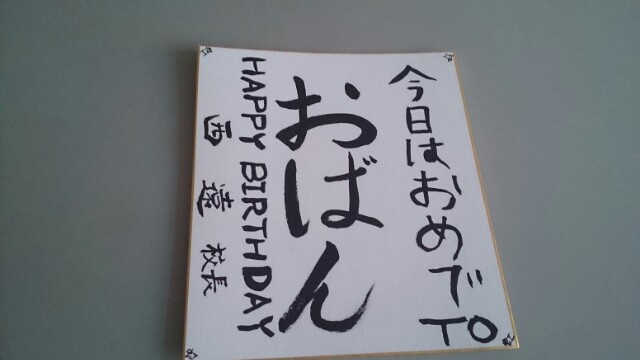 今日はおめでTO
おばん
HAPPY BIRTHDAY
西遠 校長